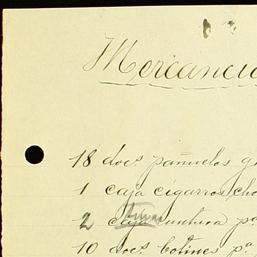 Mercancia
18 doc.s pañuelos
1 caja cigarros
2 caja untura p.a
10 doc.s botines p.a